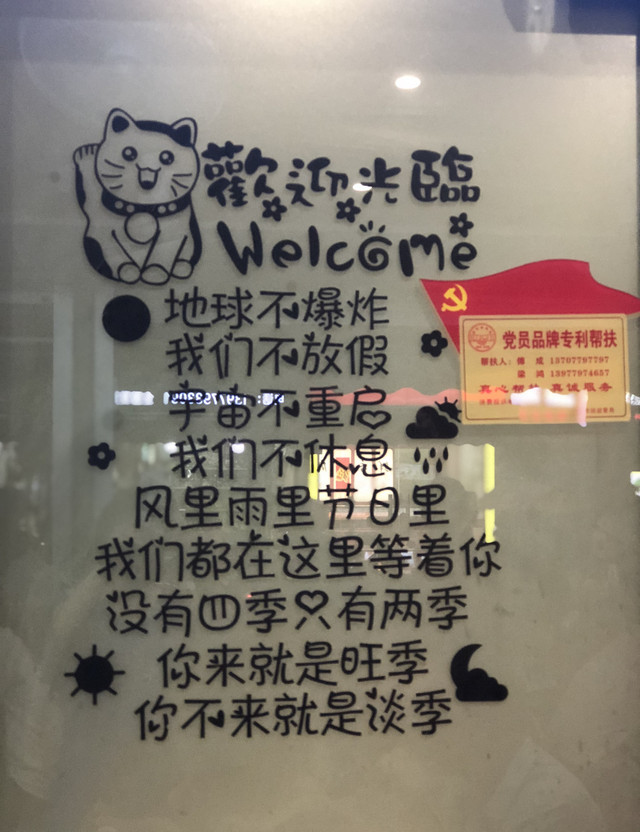 歡迎光臨
Welcome
地球不爆炸
我们不放假
宇宙不重启
我们不休息
风里雨里节日里
我们都在这里等着你
没有四季只有两季
你来就是旺季
你不来就是淡季
党员品牌专利帮扶
帮扶人:傅 成 13707797797
梁 鸿 13977974657
真心帮扶 真诚服务